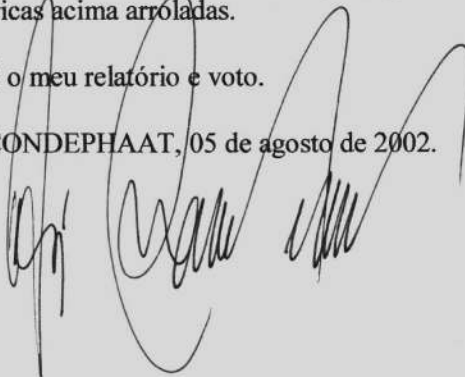 ricas acima arroladas.
o meu relatório e voto.
CONDEPHAAT, 05 de agosto de 2002.